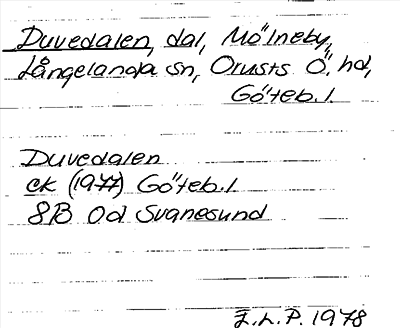 Duvedalen, dal, Mölneby,
Långelanda sn, Orusts Ö. hd,
Göteb. l.
Duvedalen
ek (1977) Göteb. l
8B 0d Svanesund
I.L.P. 1978